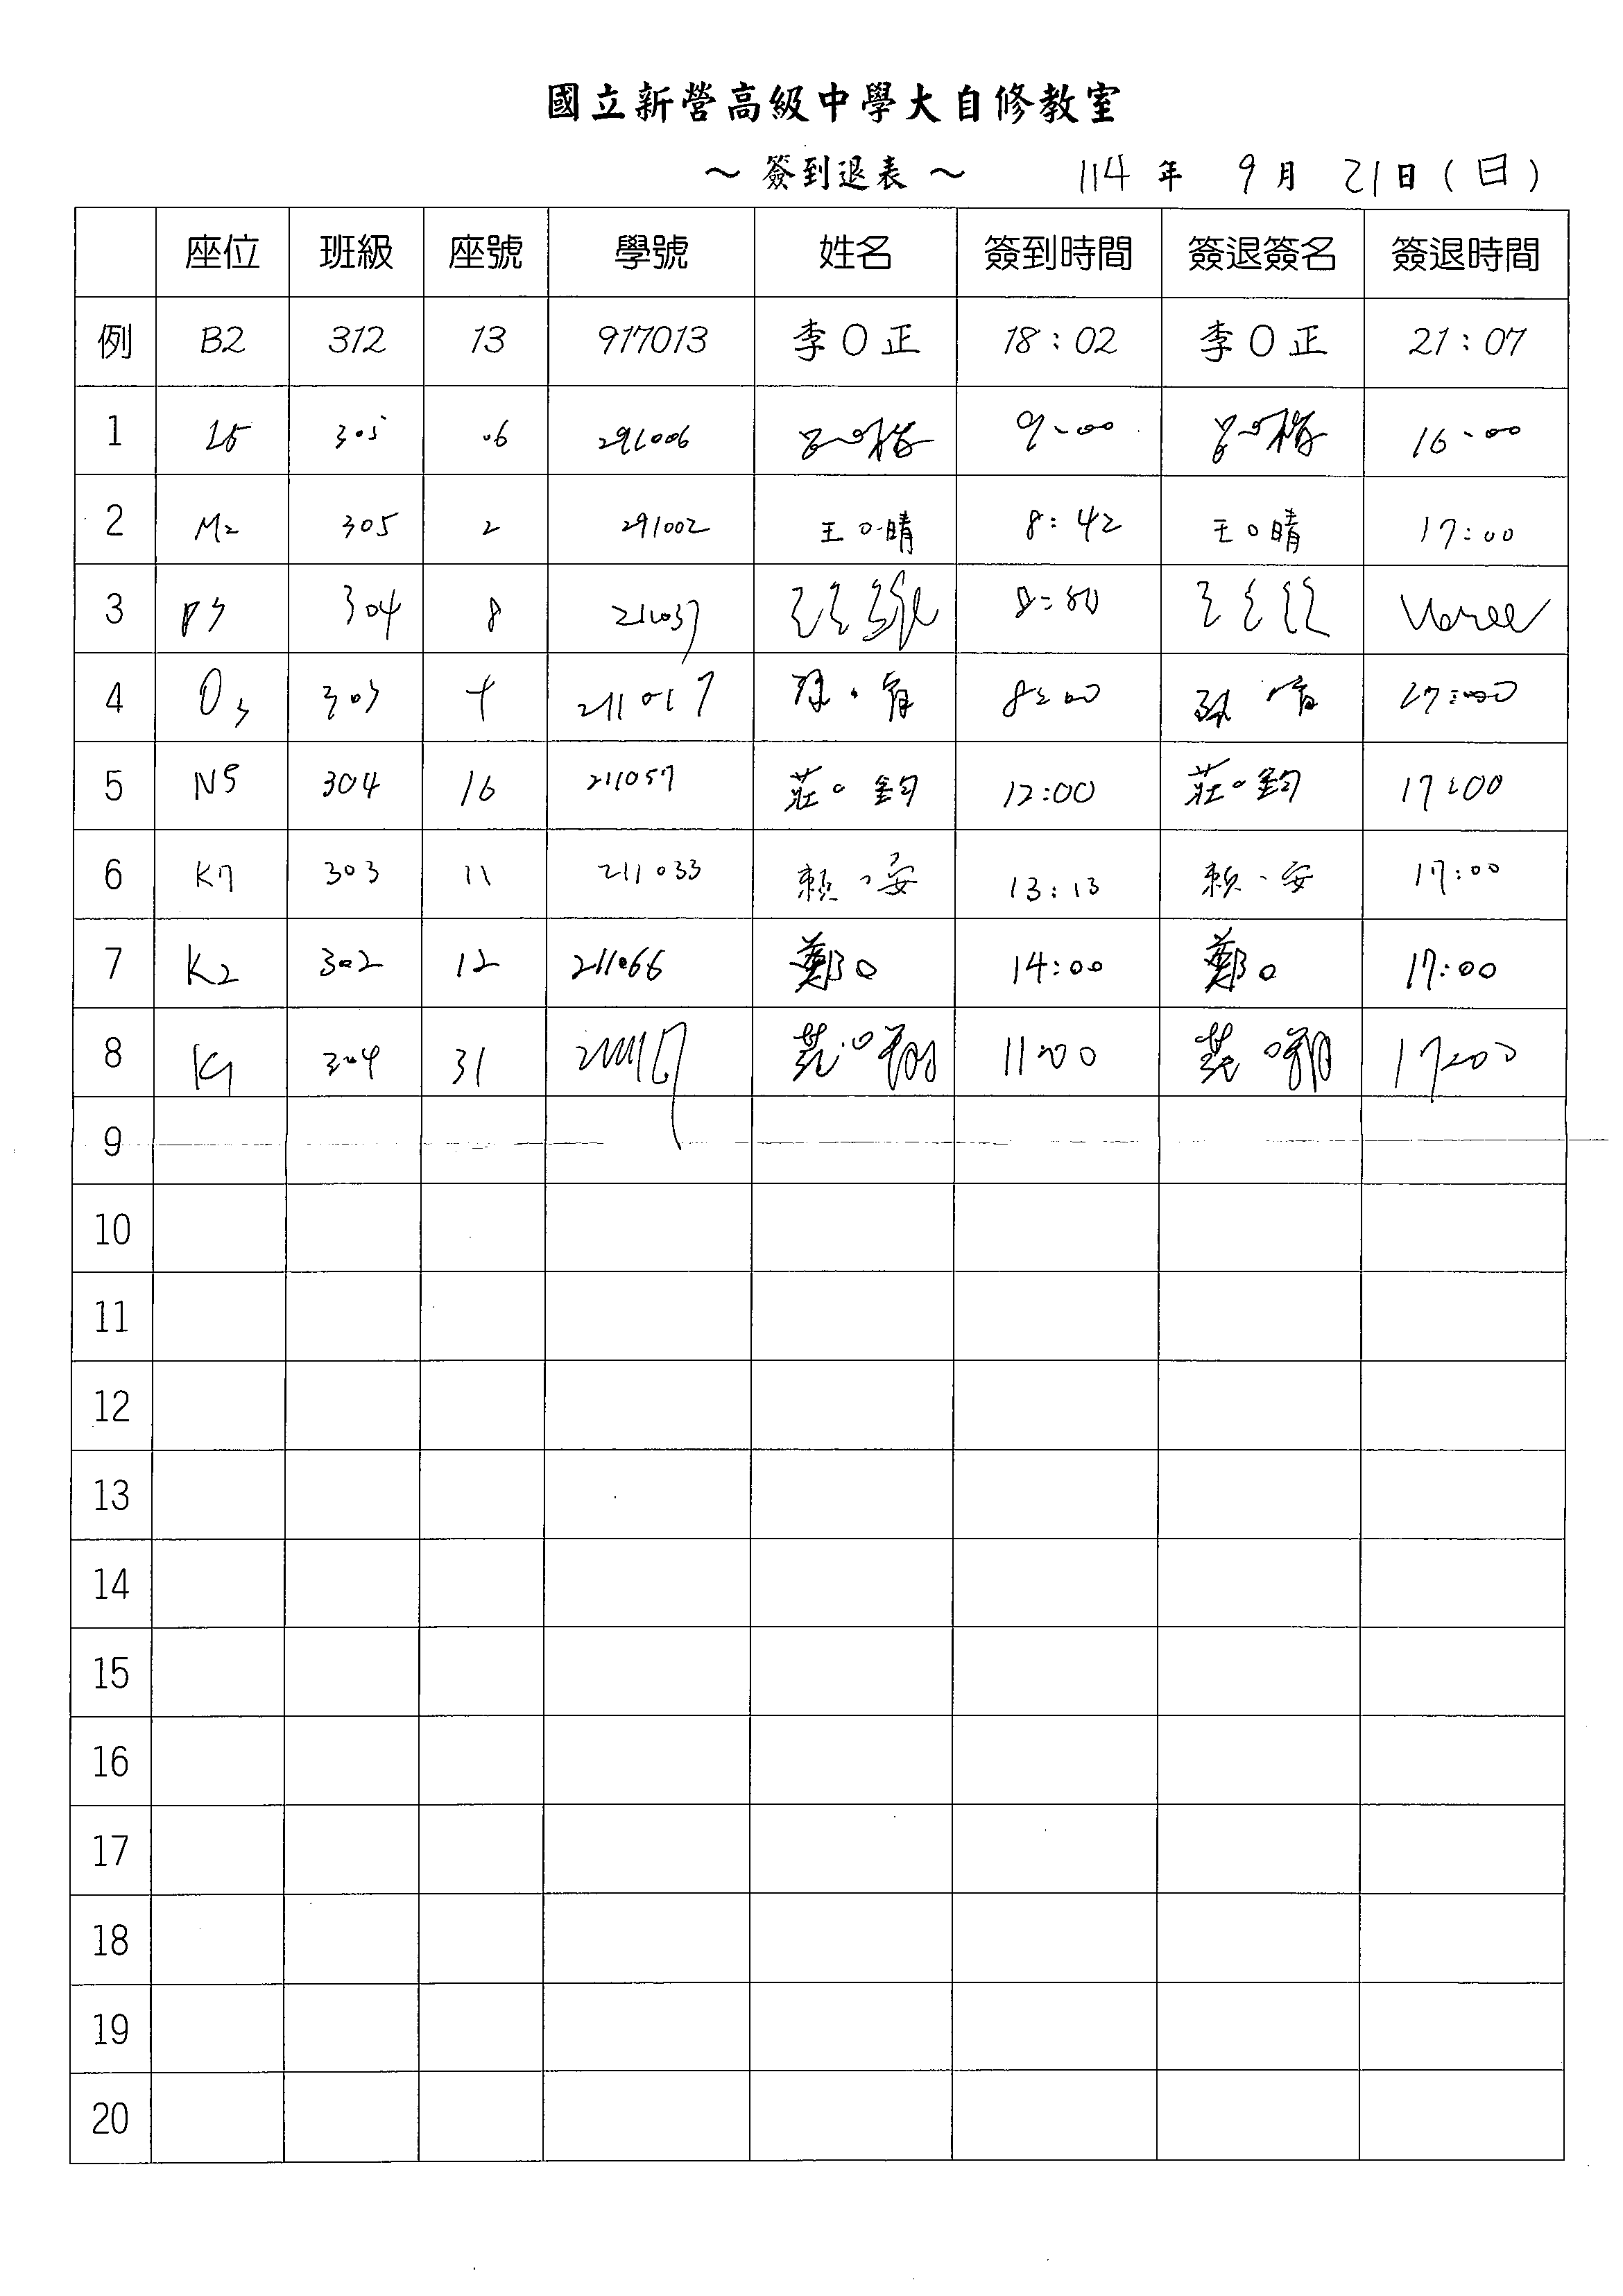 國立新營高級中學大自修教室
～ 簽到退表 ～ 114 年 9 月 21 日 ( 日 )
座位 班級 座號 學號 姓名 簽到時間 簽退簽名 簽退時間
例 B2 312 13 917013 李O正 18:02 李O正 21:07
1 305 06 291006 9:00 16:00
2 M2 305 2 291002 王O晴 8:42 王O晴 17:00
3 304 8
4 O3 303 8:00 17:00
5 N5 304 16 211057 莊O鈞 12:00 莊O鈞 17:00
6 K7 303 11 211033 賴O安 13:13 賴O安 17:00
7 K2 302 12 211066 鄭O 14:00 鄭O 17:00
8 304 31 11:00 17:00
9
10
11
12
13
14
15
16
17
18
19
20